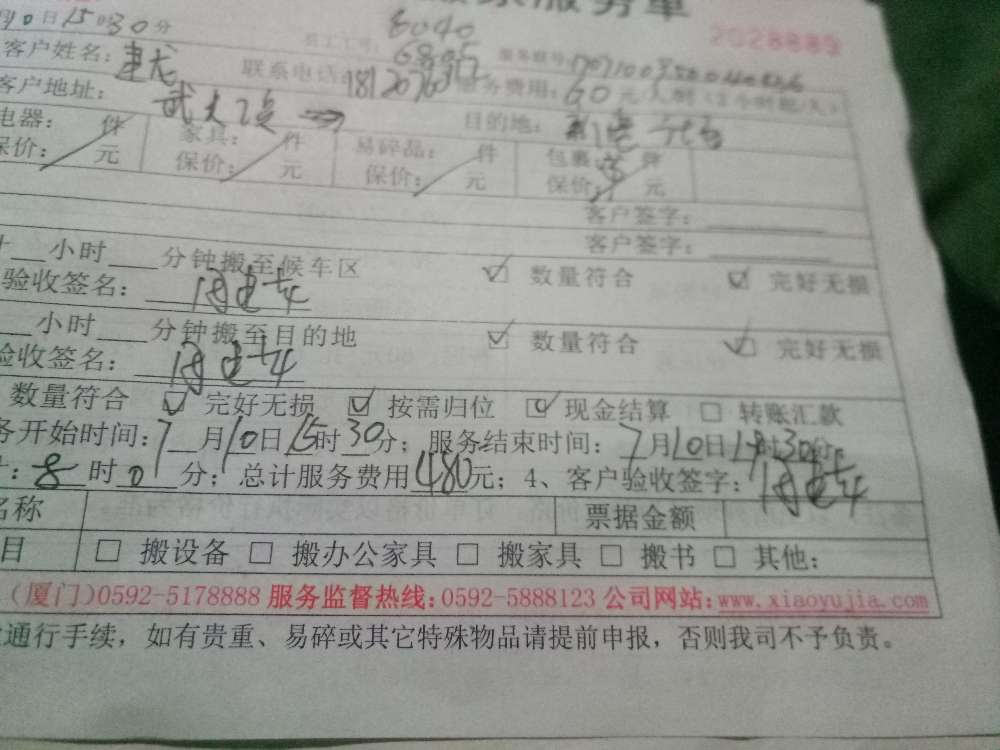 务单
2028889
10日15时30分
8040
客户姓名：建龙
联系电话
服务费用：60元/人时
客户地址：
目的地：
电器： 件 家具： 件 易碎品： 件 包裹 件
保价： 元 保价： 元 保价： 元 保价： 元
客户签字：
客户签字：
小时 分钟搬至候车区 ☑ 数量符合 ☑ 完好无损
验收签名：
小时 分钟搬至目的地 ☑ 数量符合 ☑ 完好无损
验收签名：
数量符合 ☑ 完好无损 ☑ 按需归位 ☑ 现金结算 □ 转账汇款
务开始时间：7月10日15时30分；服务结束时间：7月10日19时30分
：8时0分；总计服务费用480元；4、客户验收签字：
名称 票据金额
目 □ 搬设备 □ 搬办公家具 □ 搬家具 □ 搬书 □ 其他：
（厦门）0592-5178888 服务监督热线：0592-5888123 公司网站：www.xiaoyujia.com
通行手续，如有贵重、易碎或其它特殊物品请提前申报，否则我司不予负责。